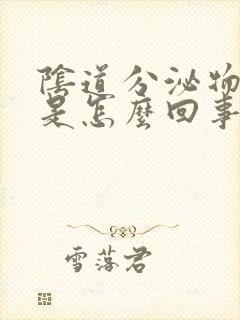 陰道分泌物
是怎麼回事
雪落君